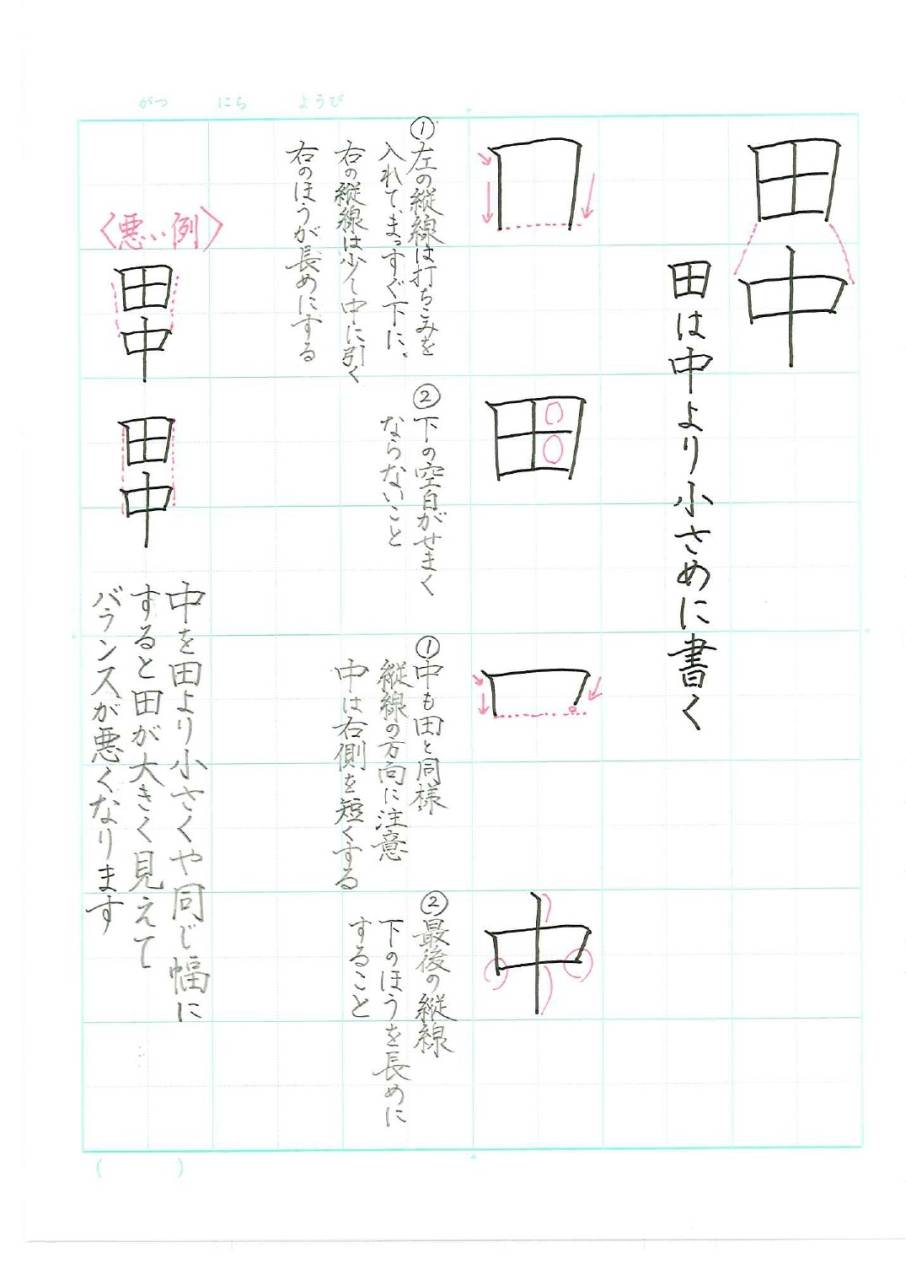 がつ にち ようび
田中
田は中より小さめに書く
①左の縦線は打ちこみを
入れて、まっすぐ下に、
右の縦線は少々中に引く
右のほうが長めにする
田
②下の空白がせまく
ならないこと
①中も田と同様
縦線の方向に注意
中は右側を短くする
中
②最後の縦線
下のほうを長めに
すること
〈悪い例〉
田中
田中
中を田より小さくや同じ幅に
すると田が大きく見えて
バランスが悪くなります
( )